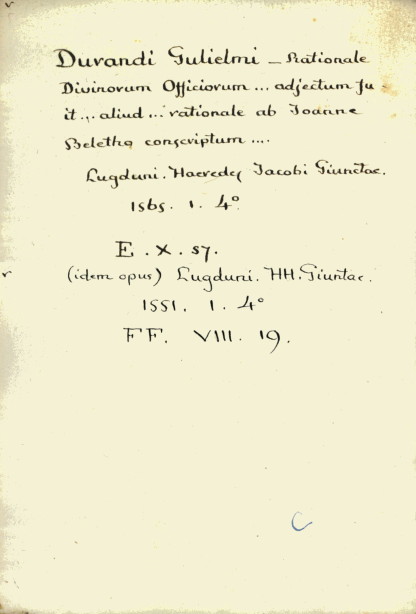 Durandi Gulielmi — Rationale
Divinorum Officiorum ... adjectum fu-
it ... aliud ... rationale ab Joanne
Beletho conscriptum ....
Lugduni. Haeredes Jacobi Giunctae.
1565. 1. 4°.
E. X. 57.
(idem opus) Lugduni. HH. Giuntae.
1551. 1. 4°
FF. VIII. 19.
C